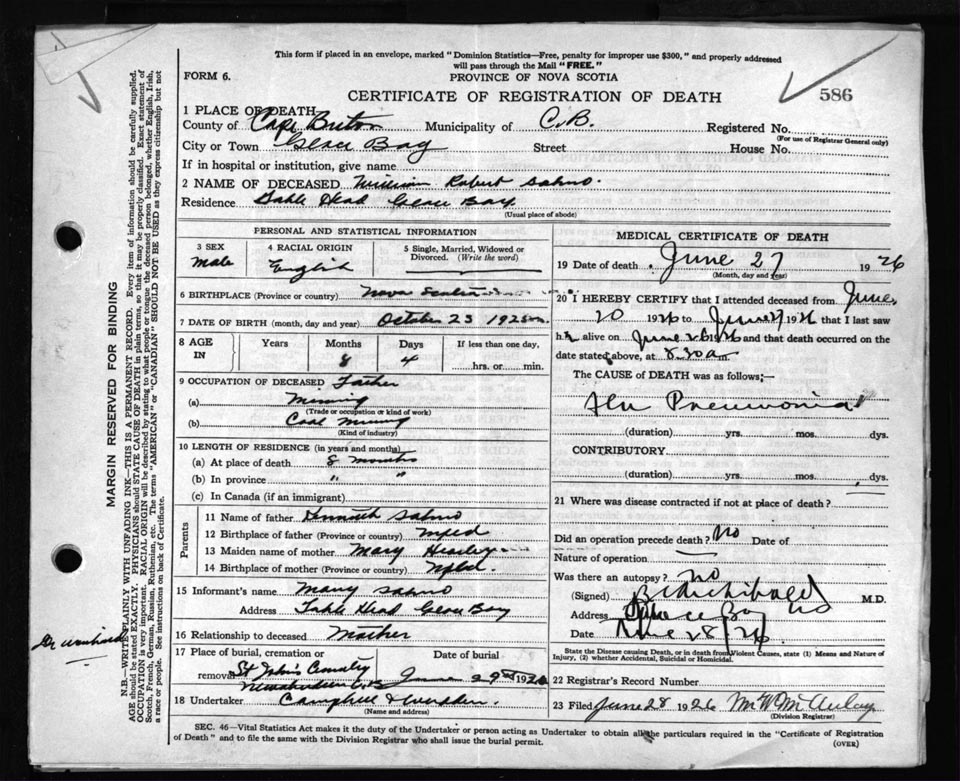 This form if placed in an envelope, marked "Dominion Statistics—Free, penalty for improper use $300," and properly addressed
will pass through the Mail "FREE."
FORM 6.
PROVINCE OF NOVA SCOTIA
CERTIFICATE OF REGISTRATION OF DEATH
586
1 PLACE OF DEATH
County of Cape Breton Municipality of C.B. Registered No.
(For use of Registrar General only)
City or Town Glace Bay Street House No.
If in hospital or institution, give name
2 NAME OF DECEASED William Robert
Residence Table Head Glace Bay
(Usual place of abode)
PERSONAL AND STATISTICAL INFORMATION
3 SEX
Male
4 RACIAL ORIGIN
English
5 Single, Married, Widowed or Divorced. (Write the word)
6 BIRTHPLACE (Province or country) Nova Scotia
7 DATE OF BIRTH (month, day and year) October 23 1925
8 AGE IN
Years Months Days If less than one day,
8 4 hrs. or min.
9 OCCUPATION OF DECEASED Father
(a) Mining
(Trade or occupation or kind of work)
(b) Coal Mining
(Kind of industry)
10 LENGTH OF RESIDENCE (in years and months)
(a) At place of death 8 months
(b) In province " "
(c) In Canada (if an immigrant)
Parents
11 Name of father Kenneth
12 Birthplace of father (Province or country) Nfld
13 Maiden name of mother Mary
14 Birthplace of mother (Province or country) Nfld.
15 Informant's name Mary
Address Table Head Glace Bay
16 Relationship to deceased Mother
17 Place of burial, cremation or removal Date of burial
St John's Cemetery
June 29 1926
18 Undertaker Campbell &
(Name and address)
MEDICAL CERTIFICATE OF DEATH
19 Date of death June 27 1926
(Month, day and year)
20 I HEREBY CERTIFY that I attended deceased from June
20 1926 to June 27 1926 that I last saw
h alive on June 26 1926 and that death occurred on the
date stated above, at 8.30 am
The CAUSE of DEATH was as follows;—
Flu Pneumonia
(duration) yrs. mos. dys.
CONTRIBUTORY
(duration) yrs. mos. dys.
21 Where was disease contracted if not at place of death?
Did an operation precede death? No Date of
Nature of operation
Was there an autopsy? no
(Signed) Archibald M.D.
Address Glace Bay NS
Date June 28/26
State the Disease causing Death, or in death from Violent Causes, state (1) Means and Nature of
Injury, (2) whether Accidental, Suicidal or Homicidal.
22 Registrar's Record Number
23 Filed June 28 1926 M W McAulay
(Division Registrar)
SEC. 46—Vital Statistics Act makes it the duty of the Undertaker or person acting as Undertaker to obtain all the particulars required in the "Certificate of Registration
of Death" and to file the same with the Division Registrar who shall issue the burial permit.
(OVER)
MARGIN RESERVED FOR BINDING
N.B.—WRITE PLAINLY WITH UNFADING INK—THIS IS A PERMANENT RECORD. Every item of information should be carefully supplied.
AGE should be stated EXACTLY. PHYSICIANS should STATE CAUSE OF DEATH in plain terms, so that it may be properly classified. Exact statement of
OCCUPATION is very important. RACIAL ORIGIN will be described by stating to what people or tongue the deceased person belonged, whether English, Irish,
Scotch, French, German, Russian, Ruthenian, etc. The terms "AMERICAN" or "CANADIAN" SHOULD NOT BE USED as they express citizenship but not
a race or people. See instructions on back of Certificate.